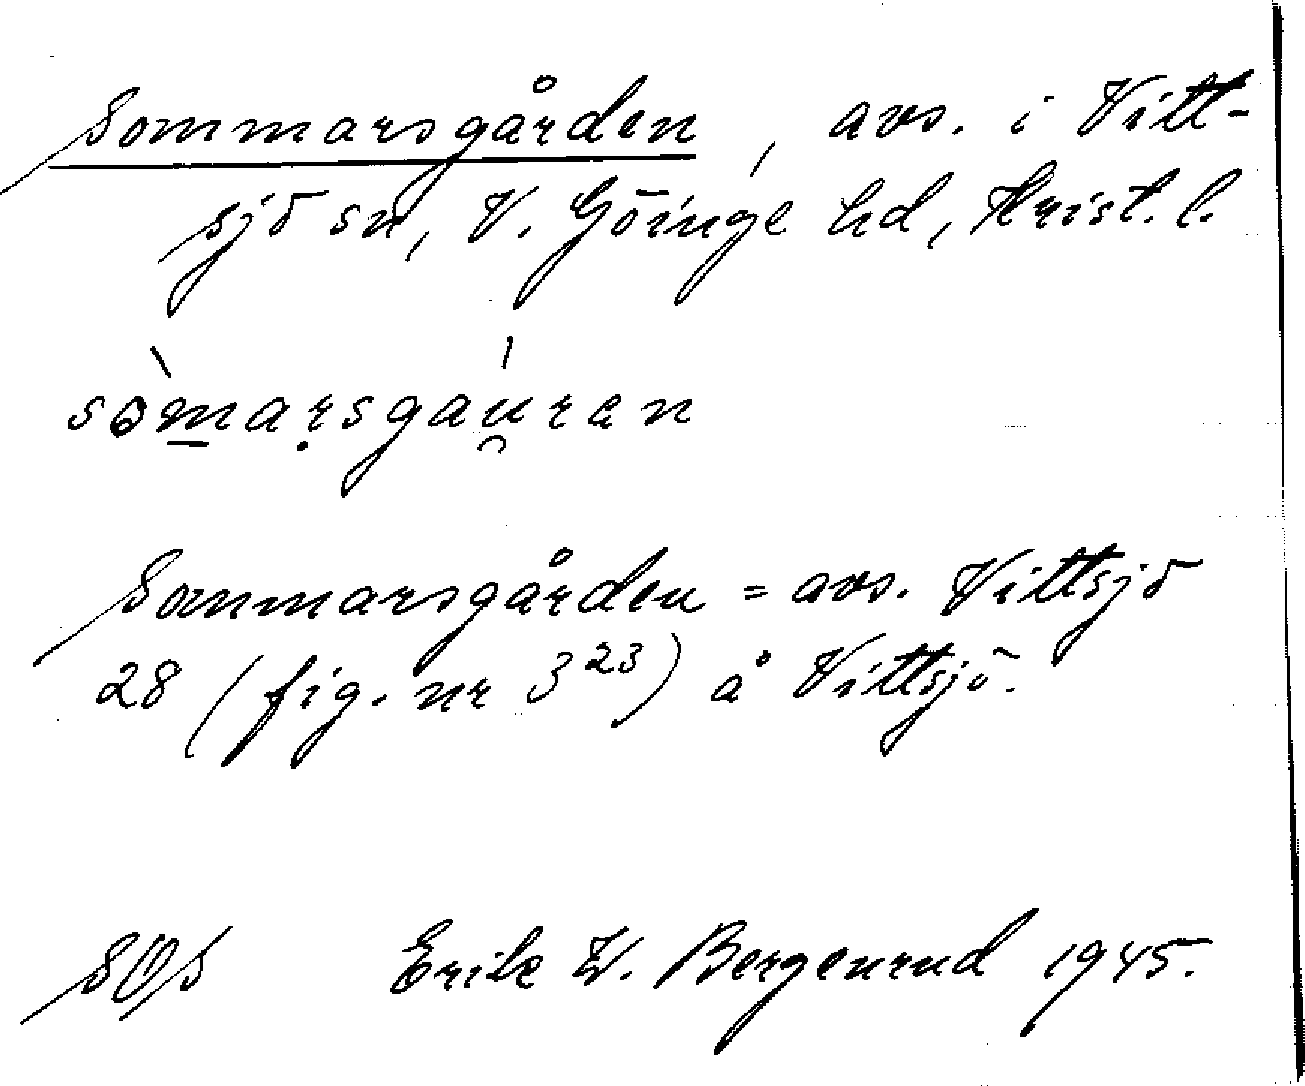 Sommarsgården, avs. i Vitt-
sjö sn, V. Göinge hd, Krist. l.
sòmarsgáuren
Sommarsgården = avs. Vittsjö
28 (fig. nr 3²³) å Vittsjö.
SOS Erik W. Bergenrud 1945.